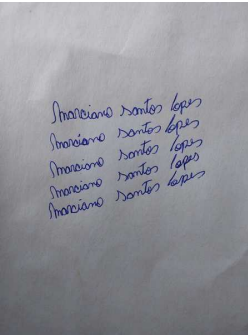 Marciano santos lopes
Marciano santos lopes
Marciano santos lopes
Marciano santos lopes
Marciano santos lopes